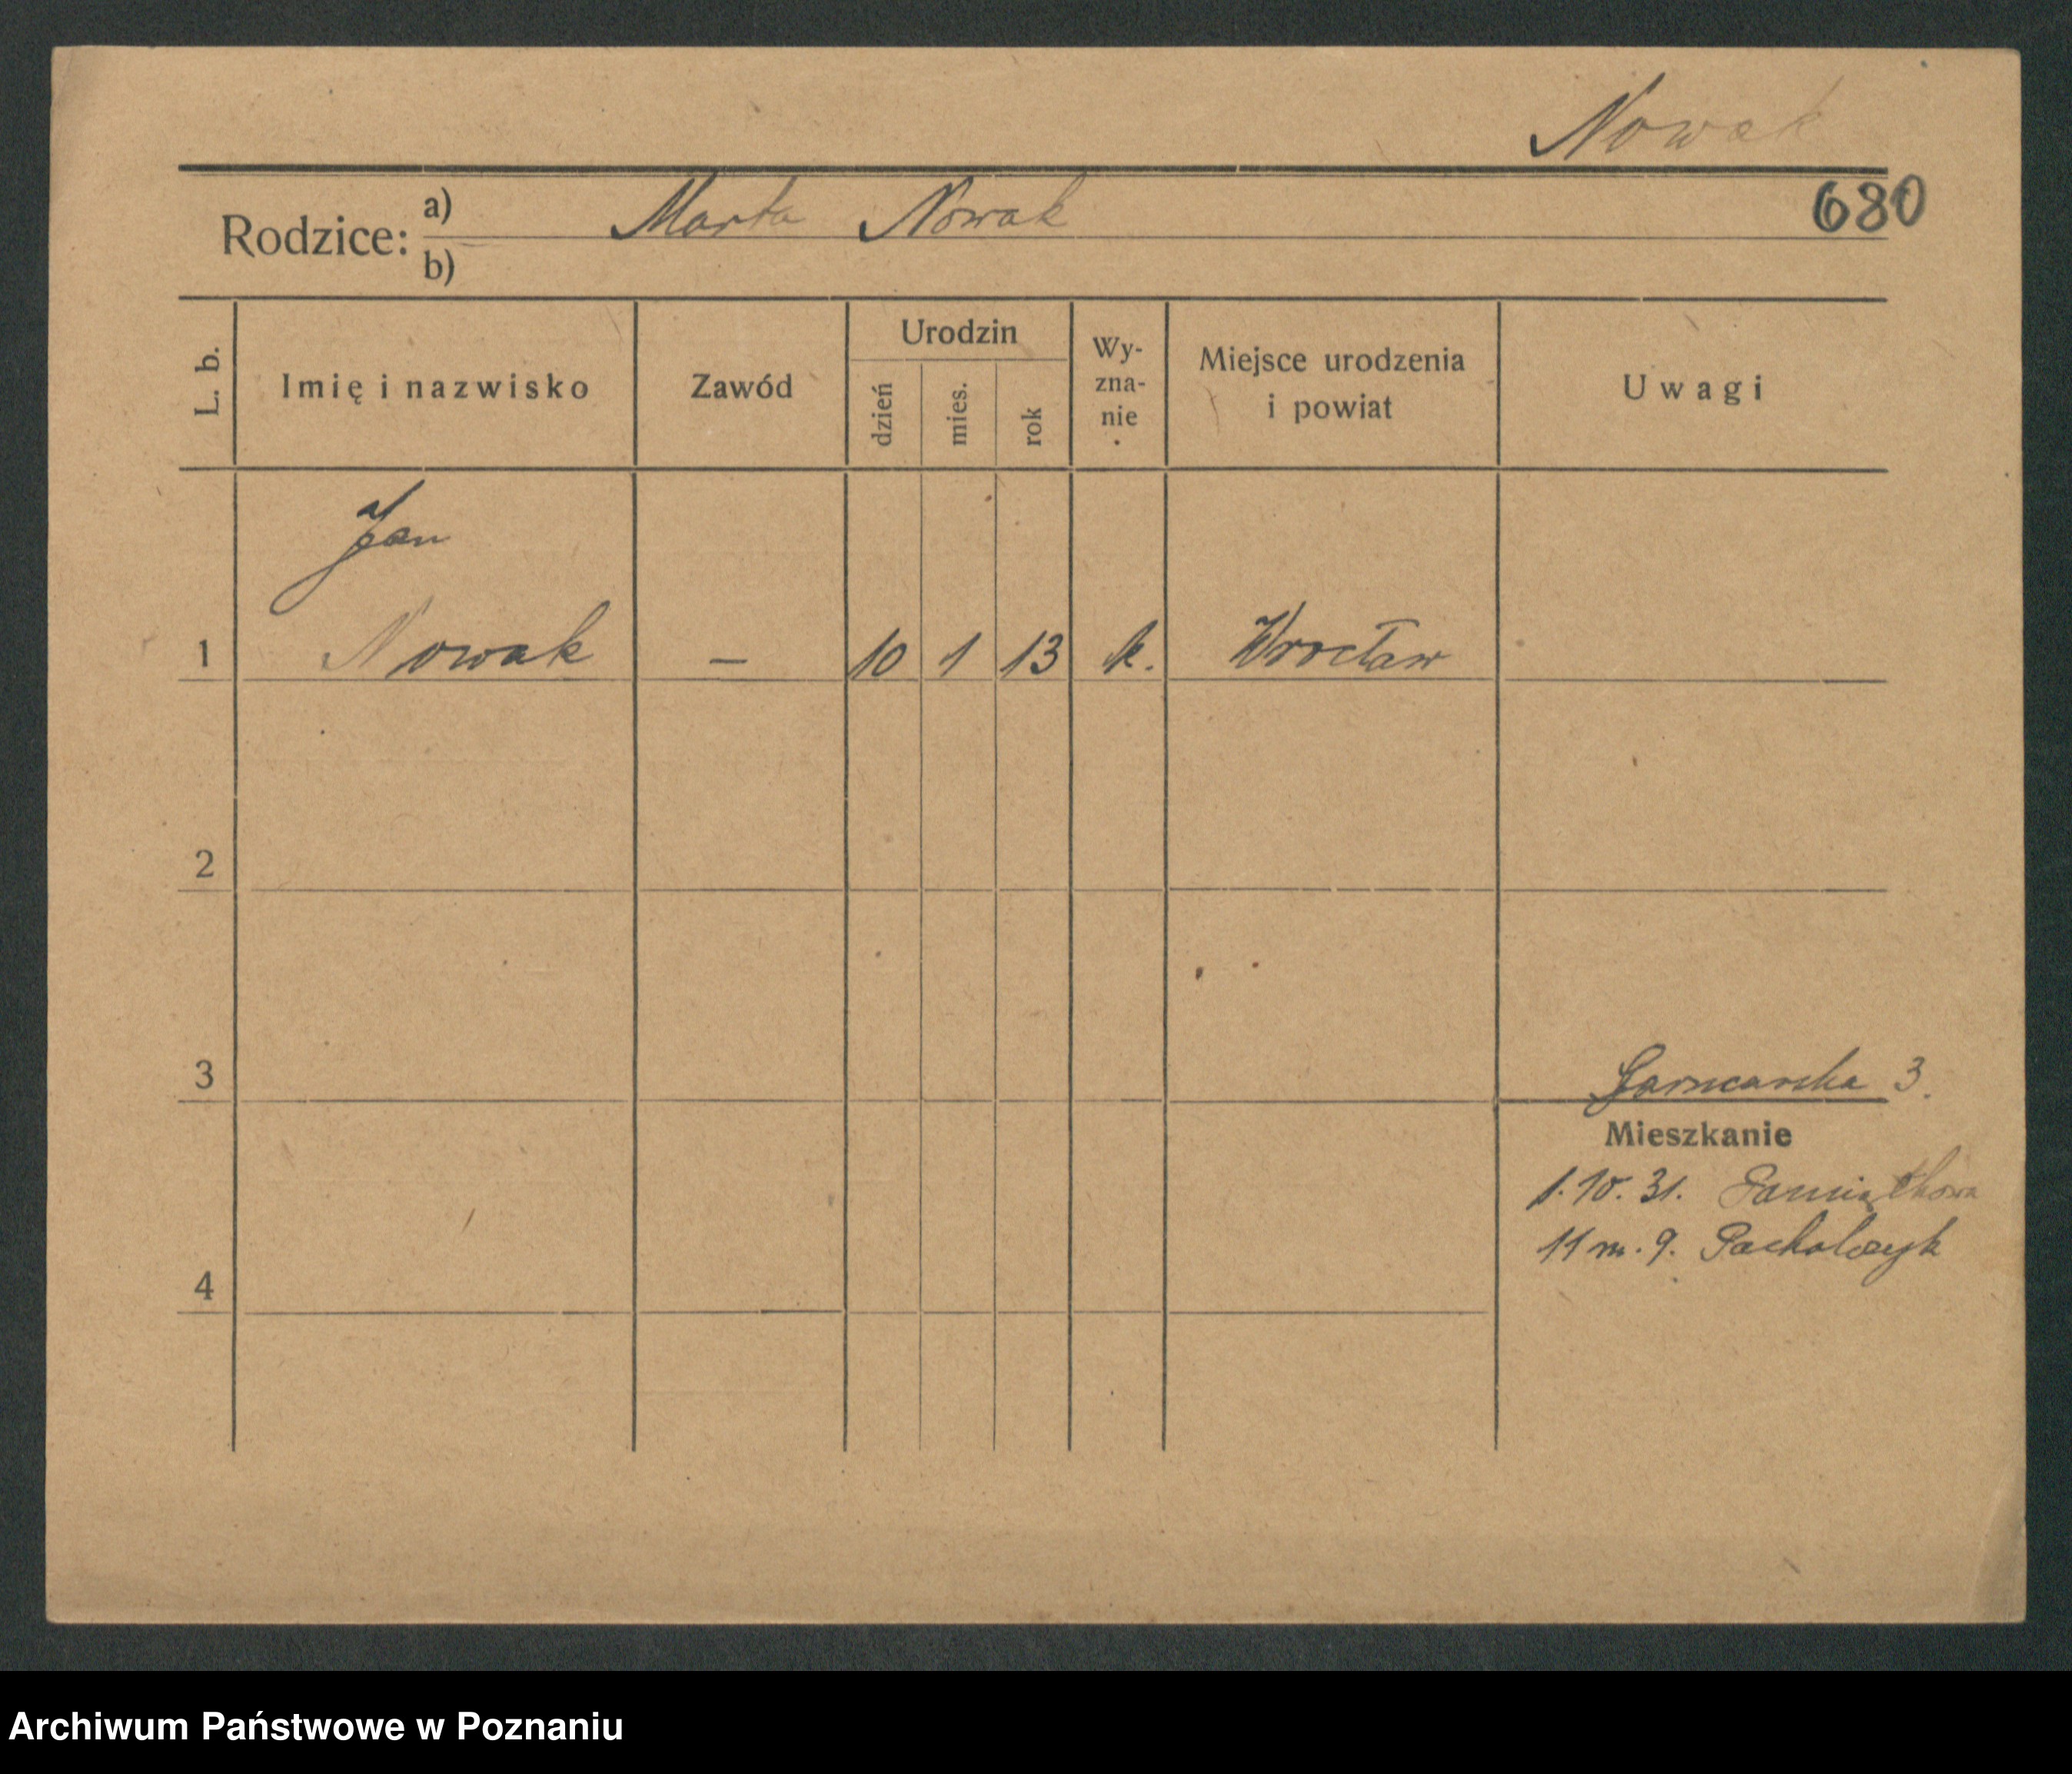 Nowak
680
Rodzice:
a) Marta Nowak
b)
L. b.
Imię i nazwisko
Zawód
Urodzin
dzień
mies.
rok
Wy-
zna-
nie
Miejsce urodzenia
i powiat
Uwagi
Jan
1 Nowak – 10 1 13 k. Wrocław
2
3
Garncarska 3.
Mieszkanie
1.10.31. Pamiątkowa
11 m. 9. Pacholczyk
4
Archiwum Państwowe w Poznaniu